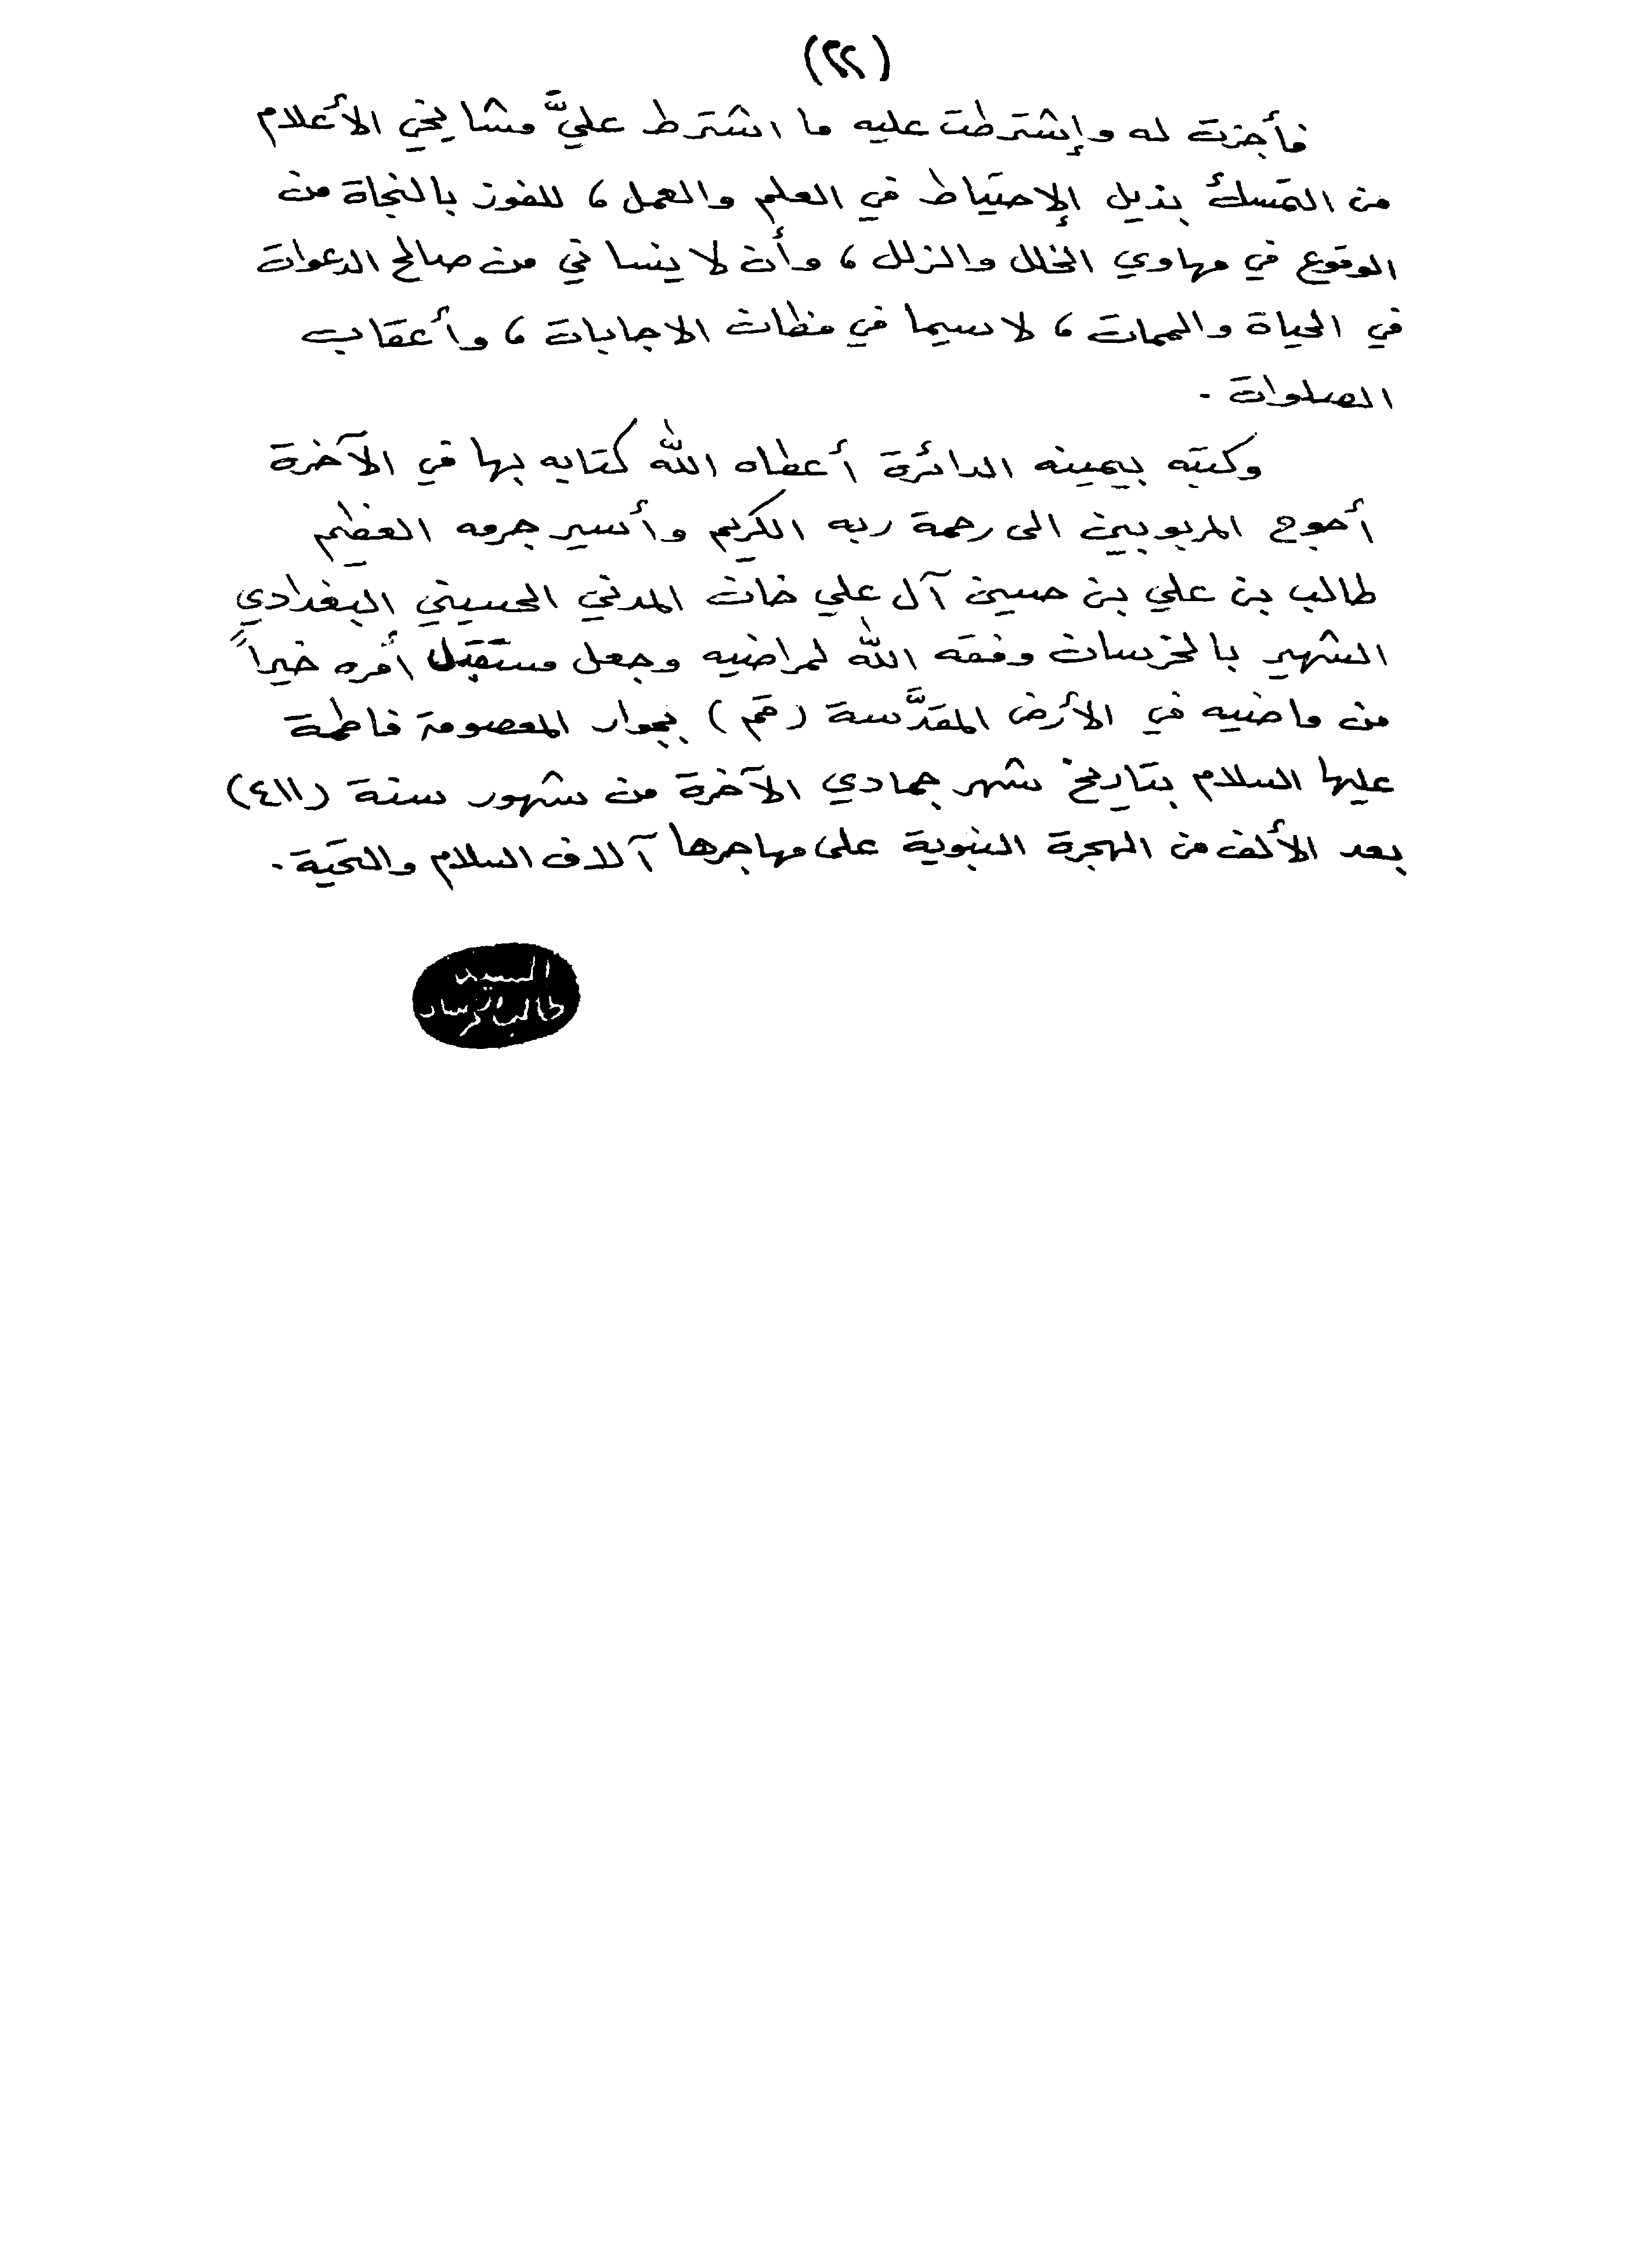 (٢٢)
فأجزت له وإشترطت عليه ما اشترط عليَّ مشايخي الأعلام
من التمسك بذيل الإحتياط في العلم والعمل ، للفوز بالنجاة من
الوقوع في مهاوي الخلل والزلل ، وأن لا ينساني من صالح الدعوات
في الحياة والممات ، لاسيما في مظان الاجابات ، وأعقاب
الصلوات .
وكتبه بيمينه الداثرة أعطاه الله كتابه بها في الآخرة
أحوج المربوبين الى رحمة ربه الكريم وأسير جرمه العظيم
طالب بن علي بن حسين آل علي خان المدني الحسيني البغدادي
الشهير بالخرسان وفقه الله لمراضيه وجعل مستقبل أمره خيراً
من ماضيه في الأرض المقدَّسة (قم) بجوار المعصومة فاطمة
عليها السلام بتاريخ شهر جمادي الآخرة من شهور سنة (٤١١)
بعد الألف من الهجرة النبوية على مهاجرها آلاف السلام والتحية .
السيد
طالب الخرسان